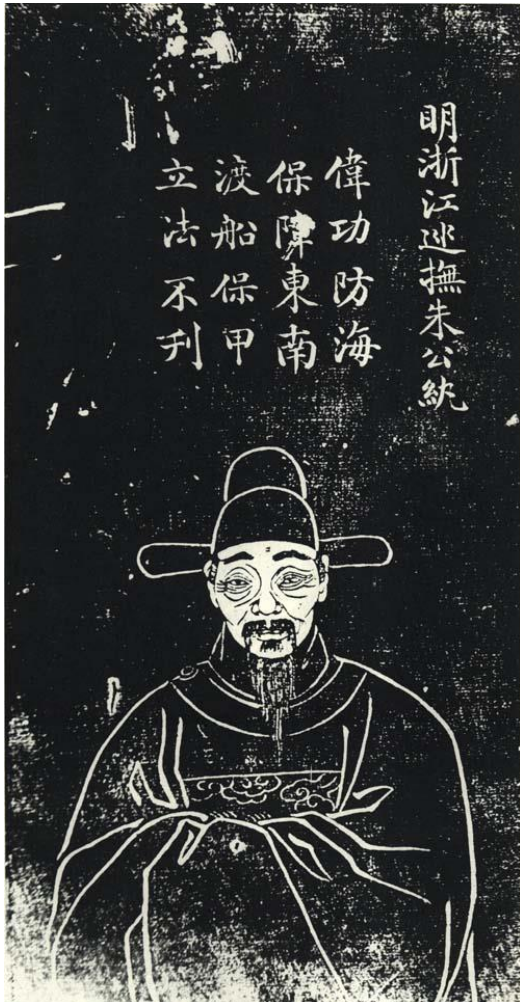 明浙江廵撫朱公紈
偉功防海
保障東南
渡船保甲
立法不刊